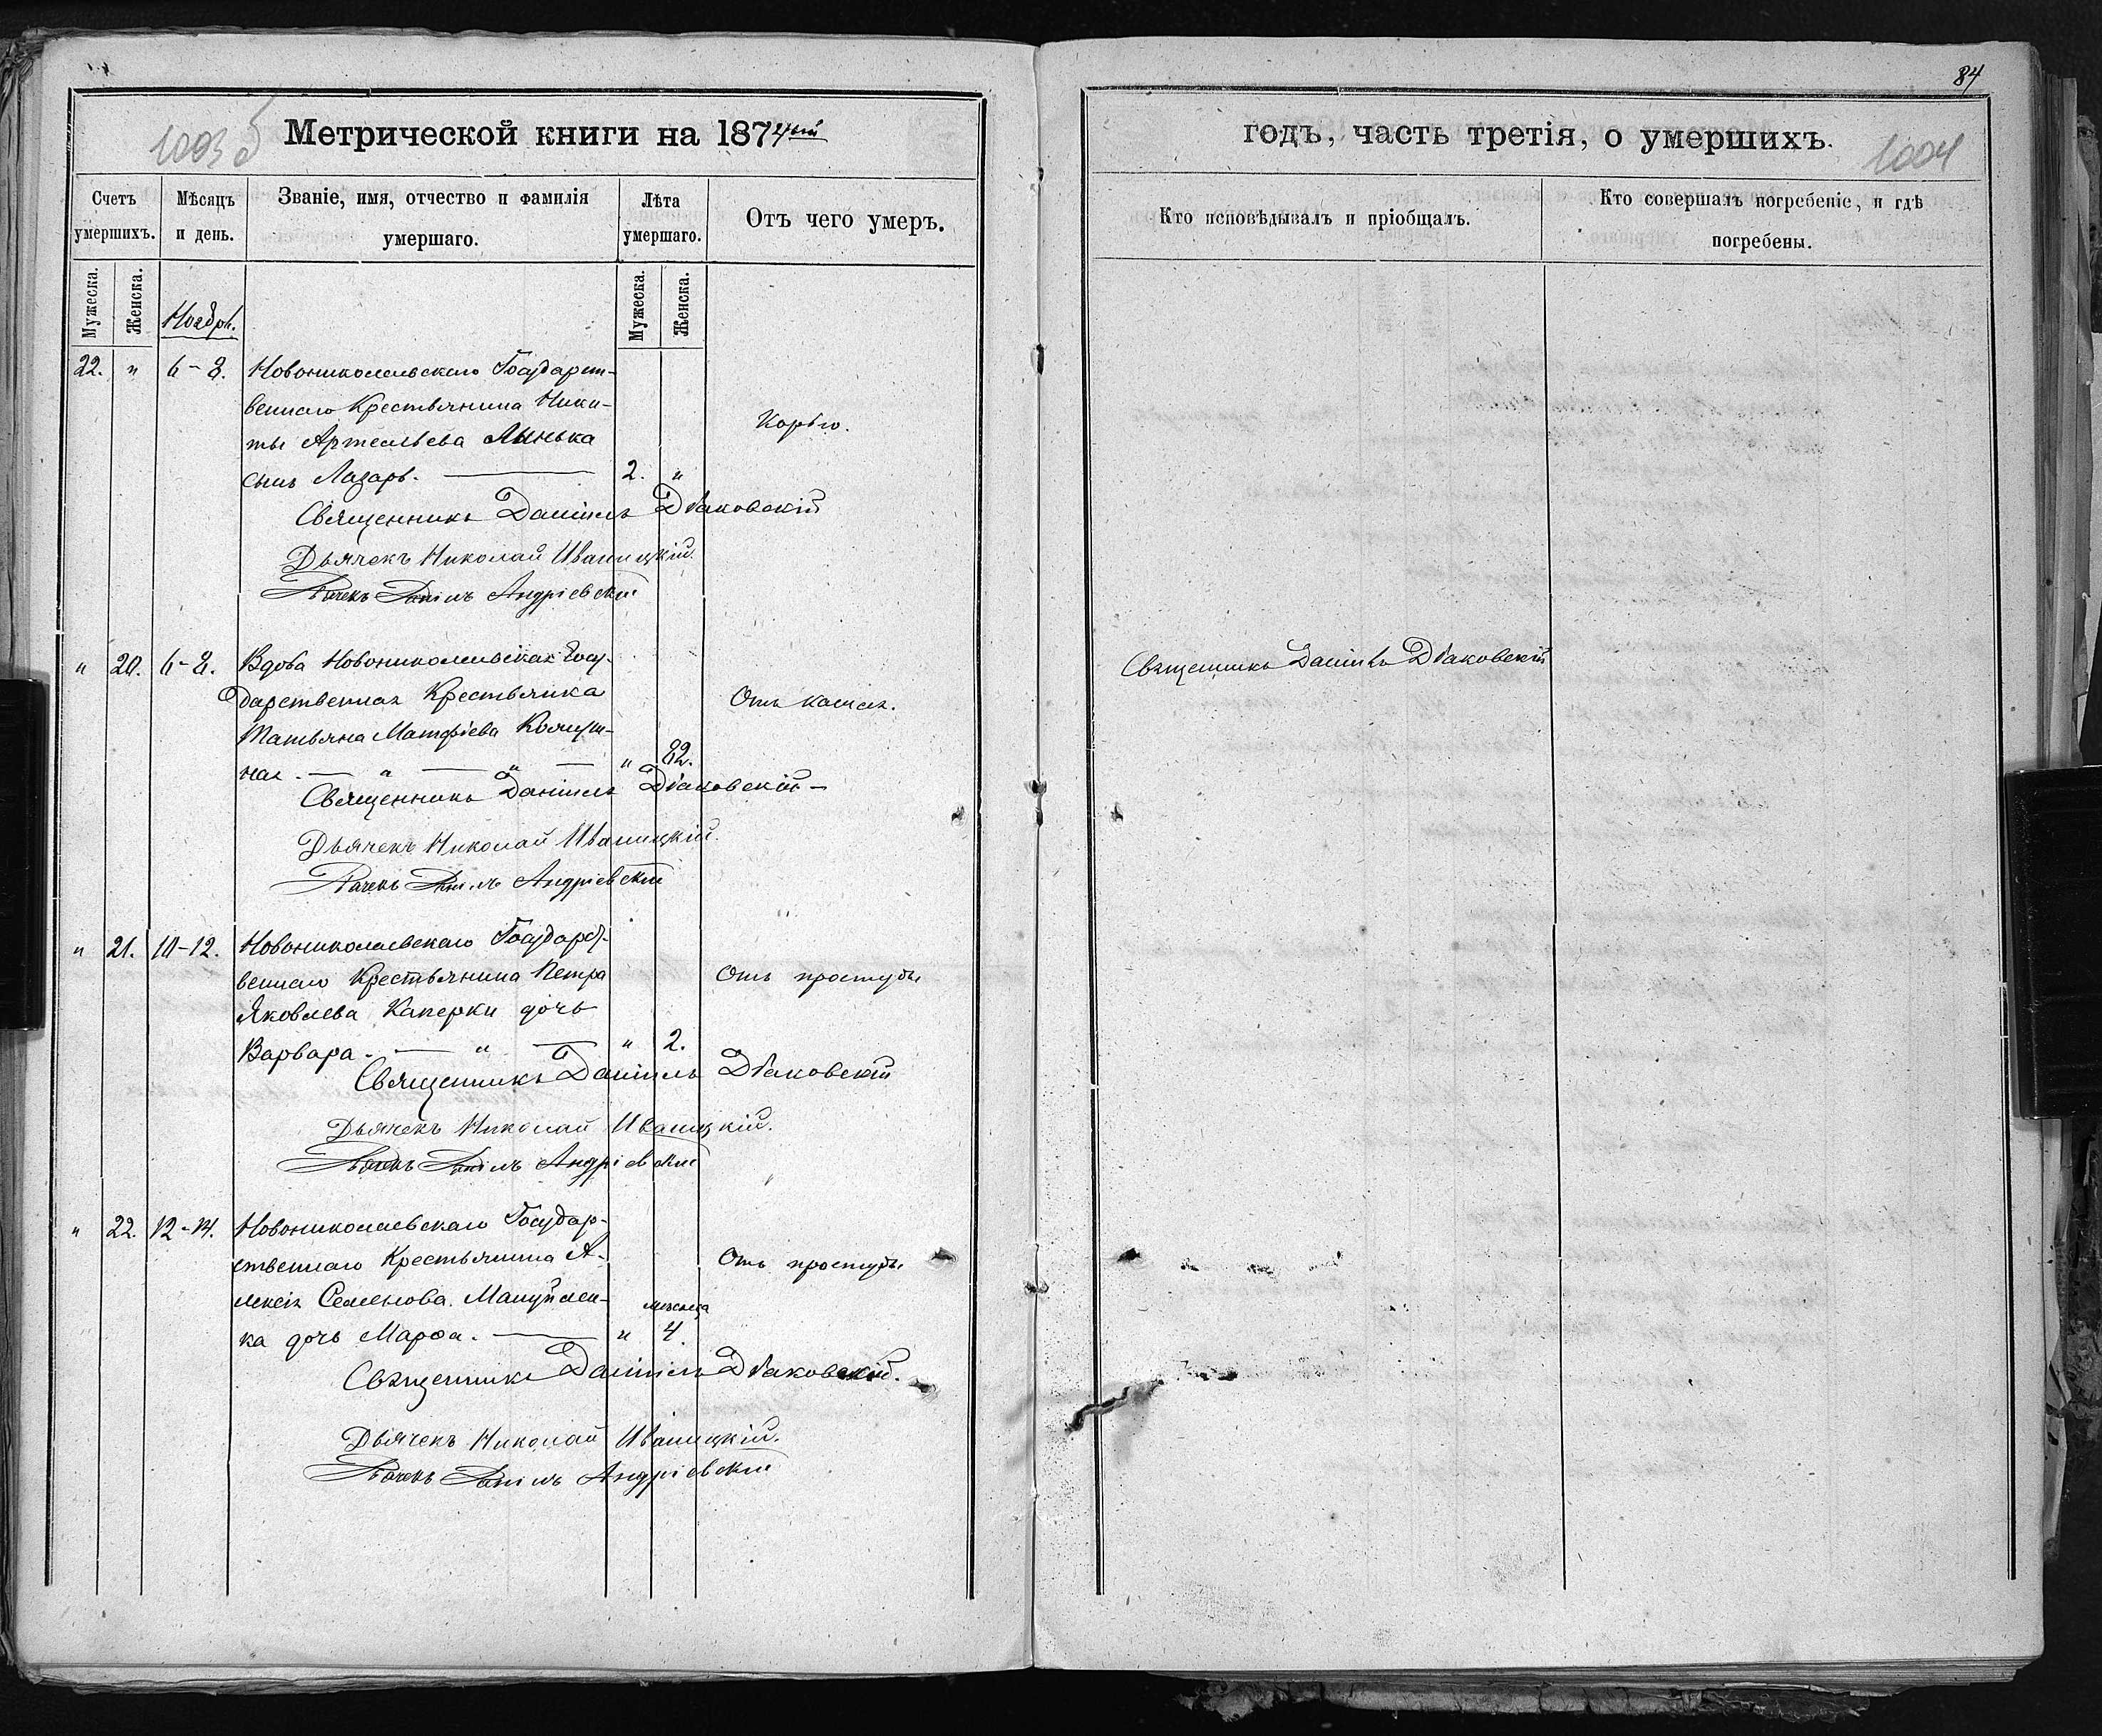 84
1003б
Метрической книги на 1874ый
годъ, часть третія, о умершихъ.
1004
Счетъ умершихъ.
Мѣсяцъ и день.
Званіе, имя, отчество и фамилія умершаго.
Лѣта умершаго.
Отъ чего умеръ.
Кто исповѣдывалъ и пріобщалъ.
Кто совершалъ погребеніе, и гдѣ погребены.
Мужеска.
Женска.
Ноябрь.
Мужеска.
Женска.
22. " 6-8. Новониколаевскаго Государст-
веннаго Крестьянина Ники-
ты Артемьева Линька
Корью.
сынъ Лазарь. 2. "
Священникъ Даніилъ Дьаковскій
Дьячекъ Николай Иваницкій.
Даніилъ Андріевскій
" 20. 6-8. Вдова Новониколаевская Госу-
дарственная Крестьянка
Отъ кашля.
Татьяна Матфіева
ная. " " " 82.
Священникъ Даніилъ Дьаковскій
Дьячекъ Николай Иваницкій.
Даніилъ Андріевскій
Священникъ Даніилъ Дьаковскій
" 21. 10-12. Новониколаевскаго Государст-
веннаго Крестьянина Петра
Отъ простуды
Яковлева Каперки дочь
Варвара. " " 2.
Священникъ Даніилъ Дьаковскій
Дьячекъ Николай Иваницкій.
Даніилъ Андріевскій
" 22. 12-14. Новониколаевскаго Государ-
ственнаго Крестьянина А-
Отъ простуды
лексія Семенова Мануйлен-
мѣсяца
ка дочь Марфа. " 4.
Священникъ Даніилъ Дьаковскій.
Дьячекъ Николай Иваницкій.
Даніилъ Андріевскій